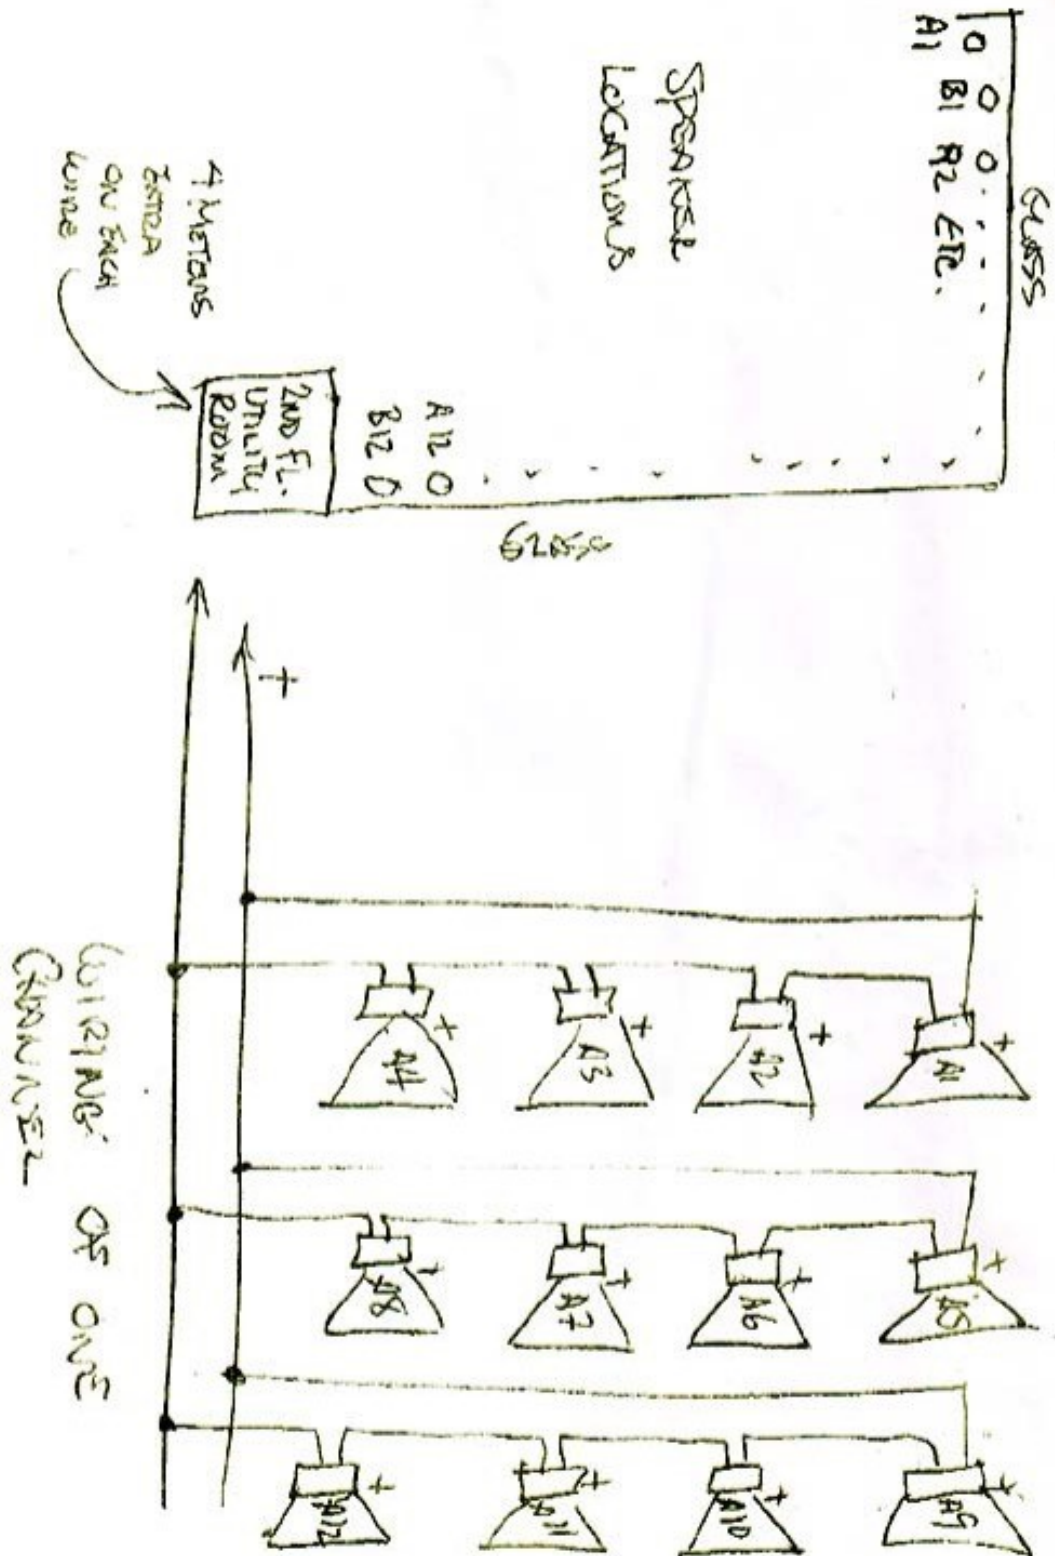 GLASS
A1 B1 A2 ETC.
SPEAKER
LOCATIONS
GLASS
A 12
B12
2ND FL.
UTILITY
ROOM
4 METERS
EXTRA
ON EACH
WIRE
+
+ A1
+ A2
+ A3
+ A4
+ A5
+ A6
+ A7
+ A8
+ A9
+ A10
+ A11
+ A12
WIRING OF ONE
CHANNEL